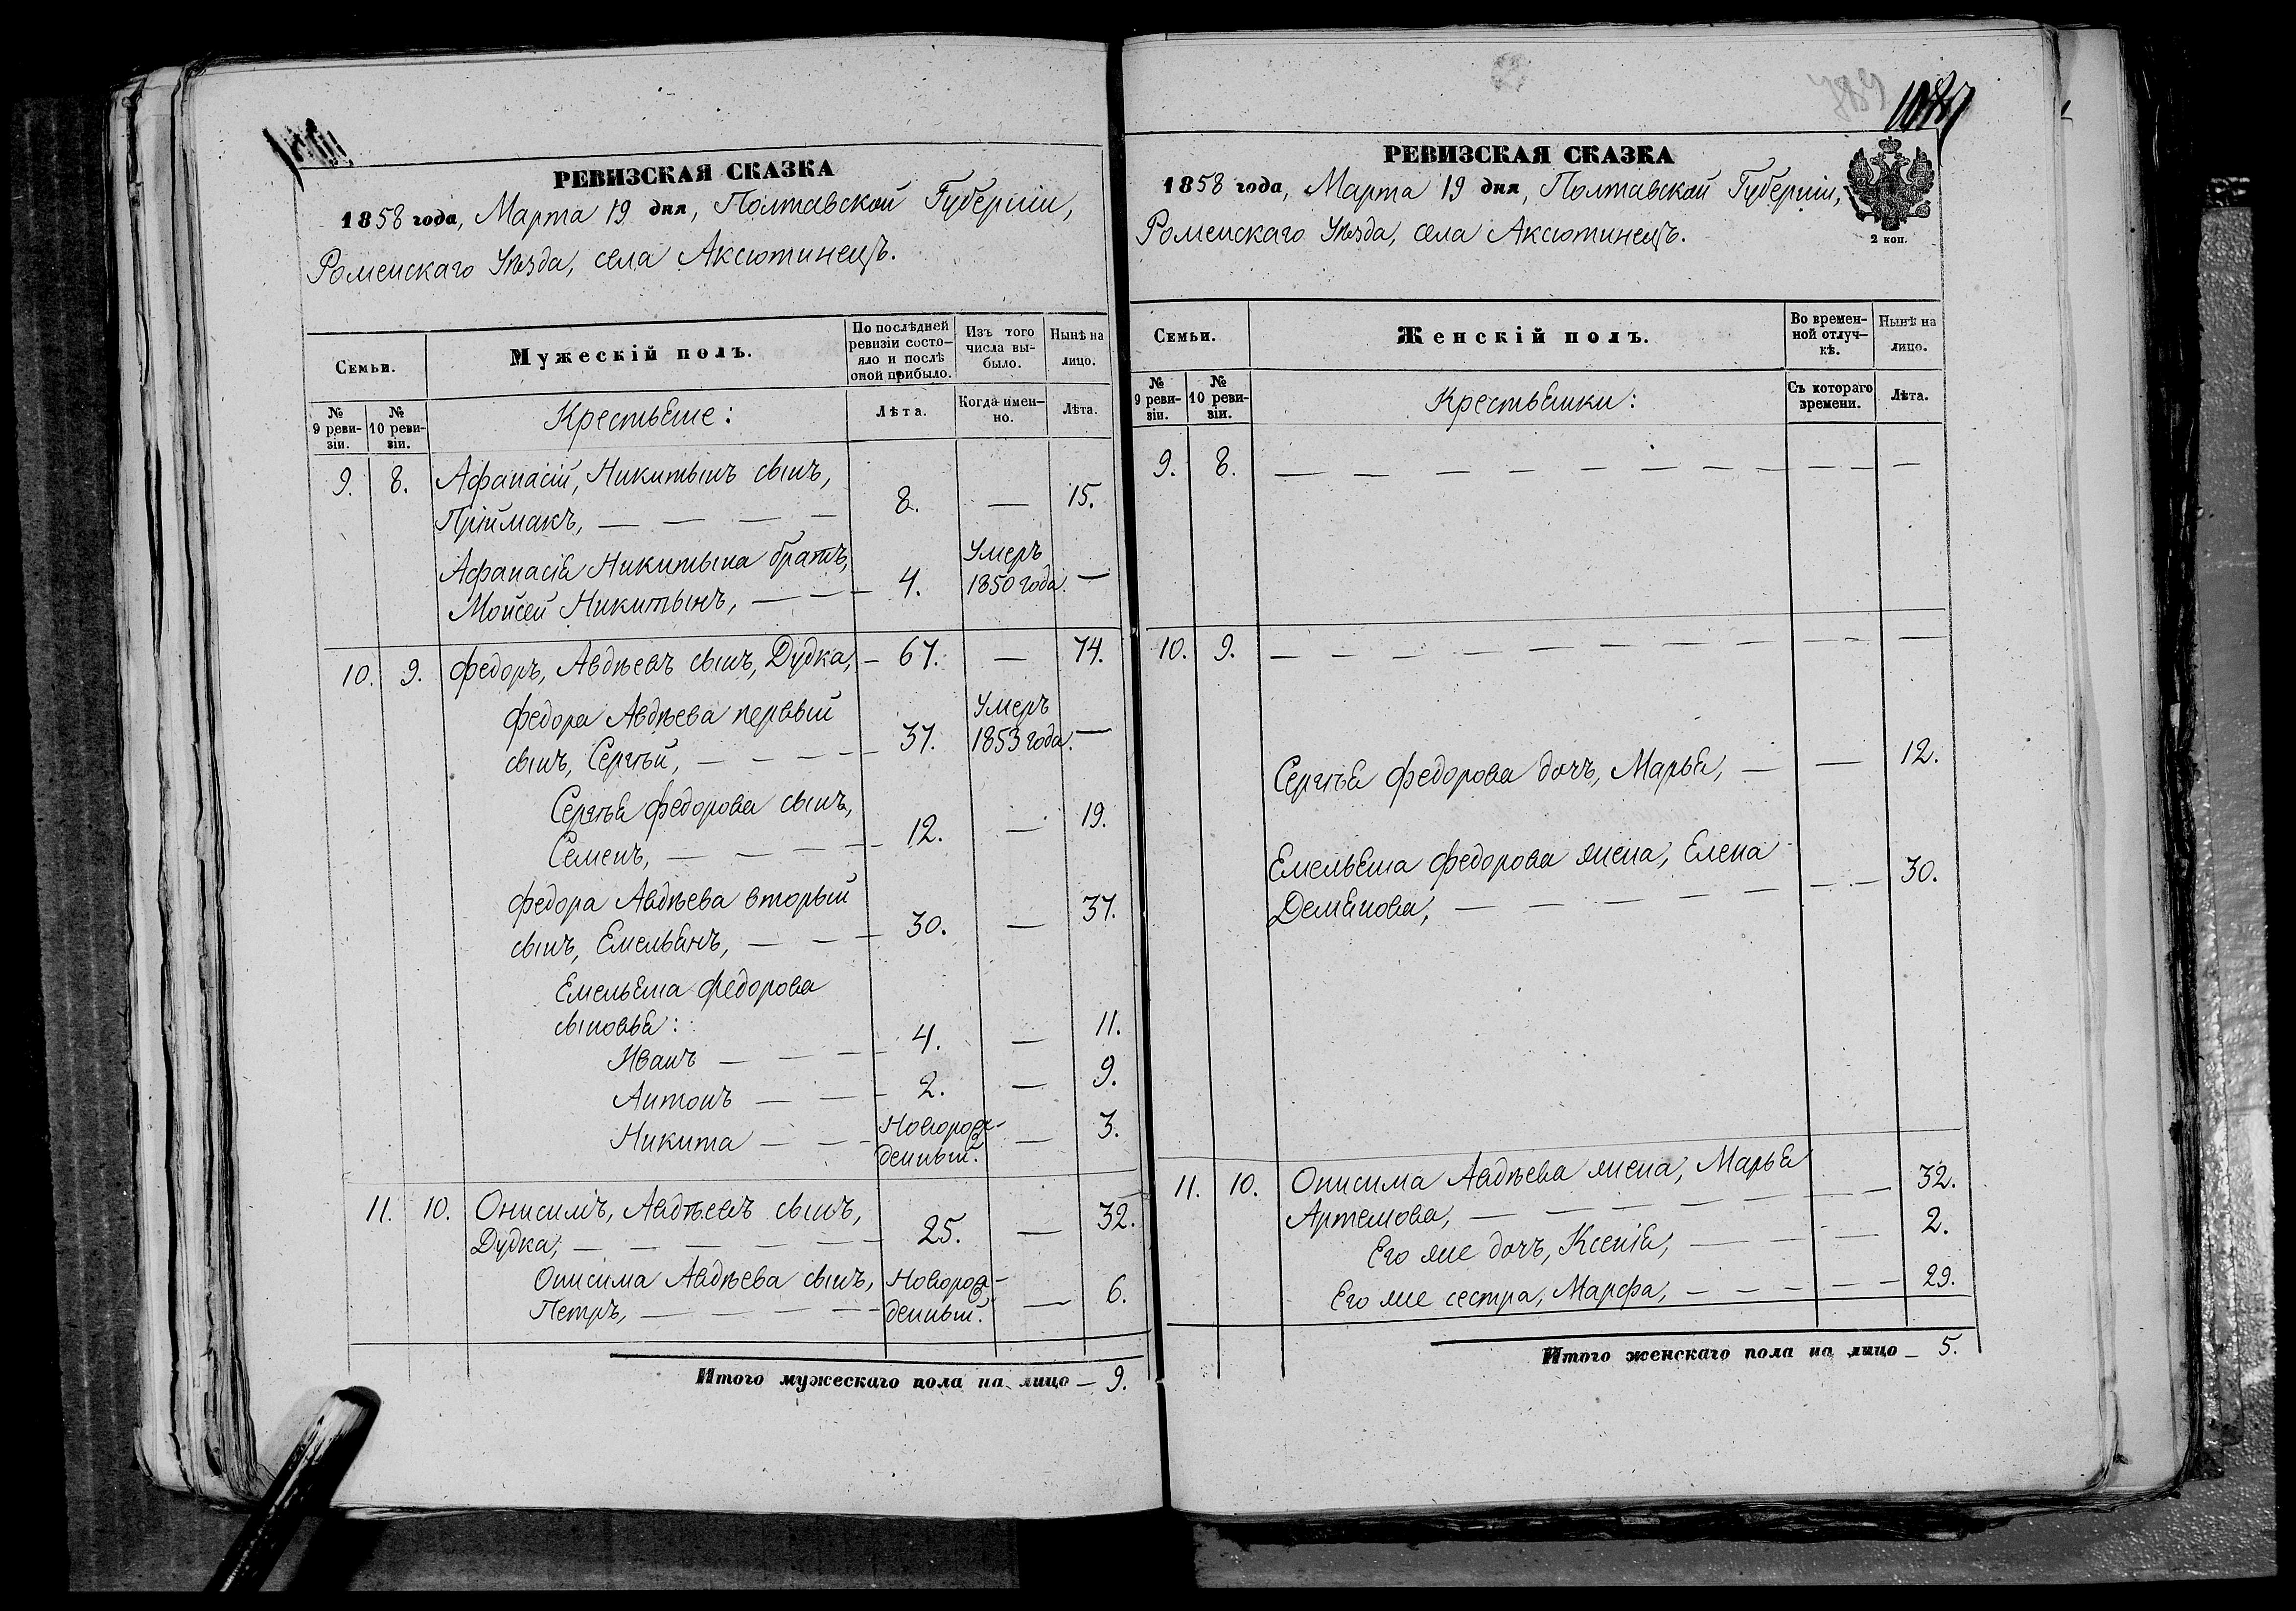 РЕВИЗСКАЯ СКАЗКА
1858 года, Марта 19 дня, Полтавской Губерніи,
Роменскаго Уѣзда, села Аксютинецъ.
Семьи.
Мужескій полъ.
По послѣдней ревизіи состо-
яло и послѣ
оной прибыло.
Изъ того
числа вы-
было.
Нынѣ на
лицо.
№
9 реви-
зіи.
№
10 реви-
зіи.
Крестьяне:
Лѣта.
Когда имен-
но.
Лѣта.
9. 8. Афанасій, Никитынъ сынъ,
Пріймакъ, — — — — 8. — 15.
Афанасія Никитына братъ, Умеръ
Мойсей Никитынъ, — — — 4. 1850 года. —
10. 9. Федоръ, Авдѣевъ сынъ, Дудка, — 67. — 74.
Федора Авдѣева первый Умеръ
сынъ, Сергѣй, — — — — 37. 1853 года. —
Сергѣя Федорова сынъ,
Семенъ, — — — — 12. — 19.
Федора Авдѣева вторый
сынъ, Емельянъ, — — — 30. — 37.
Емельяна Федорова
сыновья:
Иванъ — — — 4. — 11.
Антонъ — — — 2. — 9.
Никита — — — Новорож-
денный. — 3.
11. 10. Онисимъ, Авдѣевъ сынъ,
Дудка, — — — — — 25. — 32.
Онисима Авдѣева сынъ, Новорож-
Петръ, — — — — денный. — 6.
Итого мужескаго пола на лицо — 9.
РЕВИЗСКАЯ СКАЗКА
1858 года, Марта 19 дня, Полтавской Губерніи,
Роменскаго Уѣзда, села Аксютинецъ.
2 коп.
Семьи.
Женскій полъ.
Во времен-
ной отлуч-
кѣ.
Нынѣ на
лицо.
№
9 реви-
зіи.
№
10 реви-
зіи.
Крестьянки:
Съ котораго
времени.
Лѣта.
9. 8. — — — — — — — — — — —
10. 9. — — — — — — — — — — —
Сергѣя Федорова дочь, Марья, — — 12.
Емельяна Федорова жена, Елена
Демянова, — — — — — — — 30.
11. 10. Онисима Авдѣева жена, Марья
Артемова, — — — — — — 32.
Его же дочь, Ксенія, — — — — 2.
Его же сестра, Марфа, — — — — — 29.
Итого женскаго пола на лицо — 5.